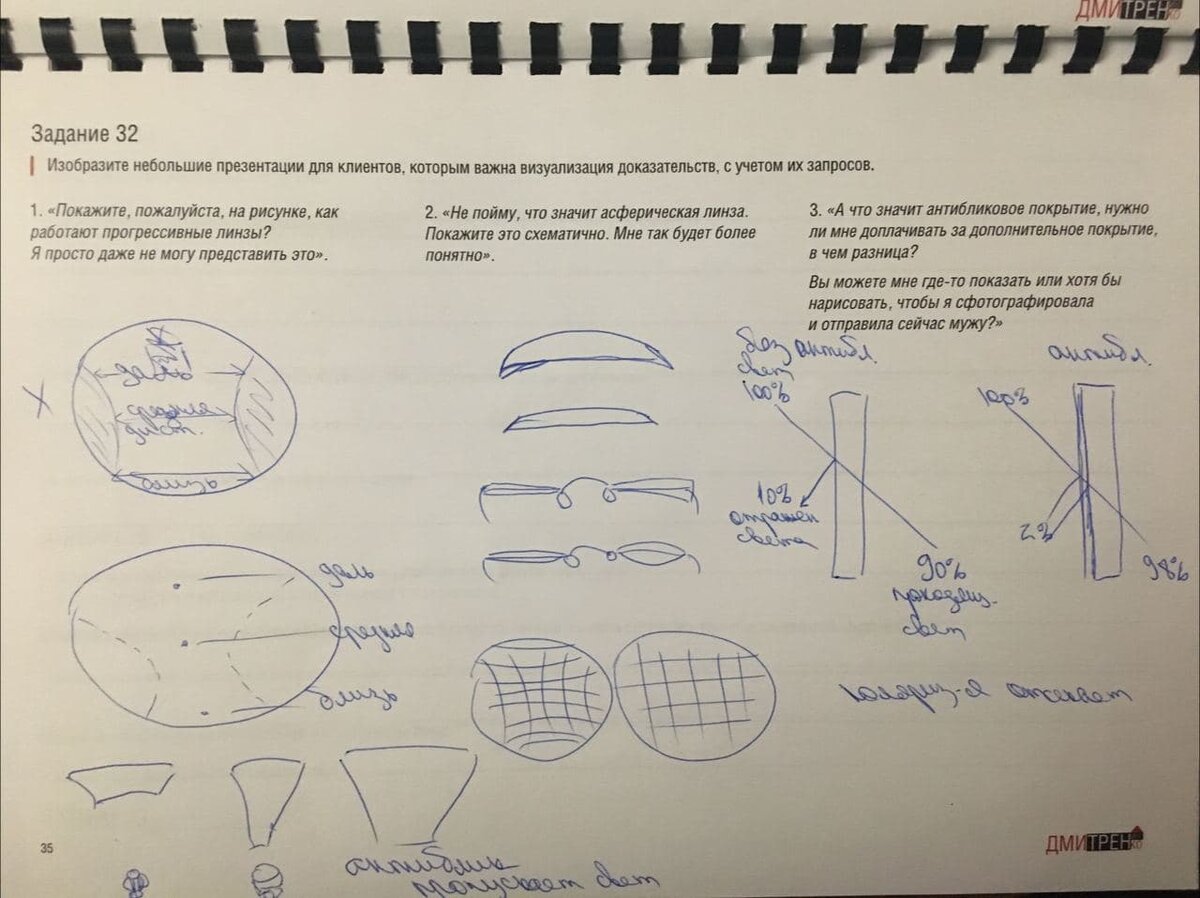 ДМИТРЕНКО
Задание 32
Изобразите небольшие презентации для клиентов, которым важна визуализация доказательств, с учетом их запросов.
1. «Покажите, пожалуйста, на рисунке, как
работают прогрессивные линзы?
Я просто даже не могу представить это».
2. «Не пойму, что значит асферическая линза.
Покажите это схематично. Мне так будет более
понятно».
3. «А что значит антибликовое покрытие, нужно
ли мне доплачивать за дополнительное покрытие,
в чем разница?
Вы можете мне где-то показать или хотя бы
нарисовать, чтобы я сфотографировала
и отправила сейчас мужу?»
даль
средняя
дист.
близь
даль
средняя
близь
без антибл.
свет
100%
10%
отражен
света
90%
проходящ.
свет
антибл.
100%
2%
98%
антиблик
пропускает свет
35
ДМИТРЕНКО